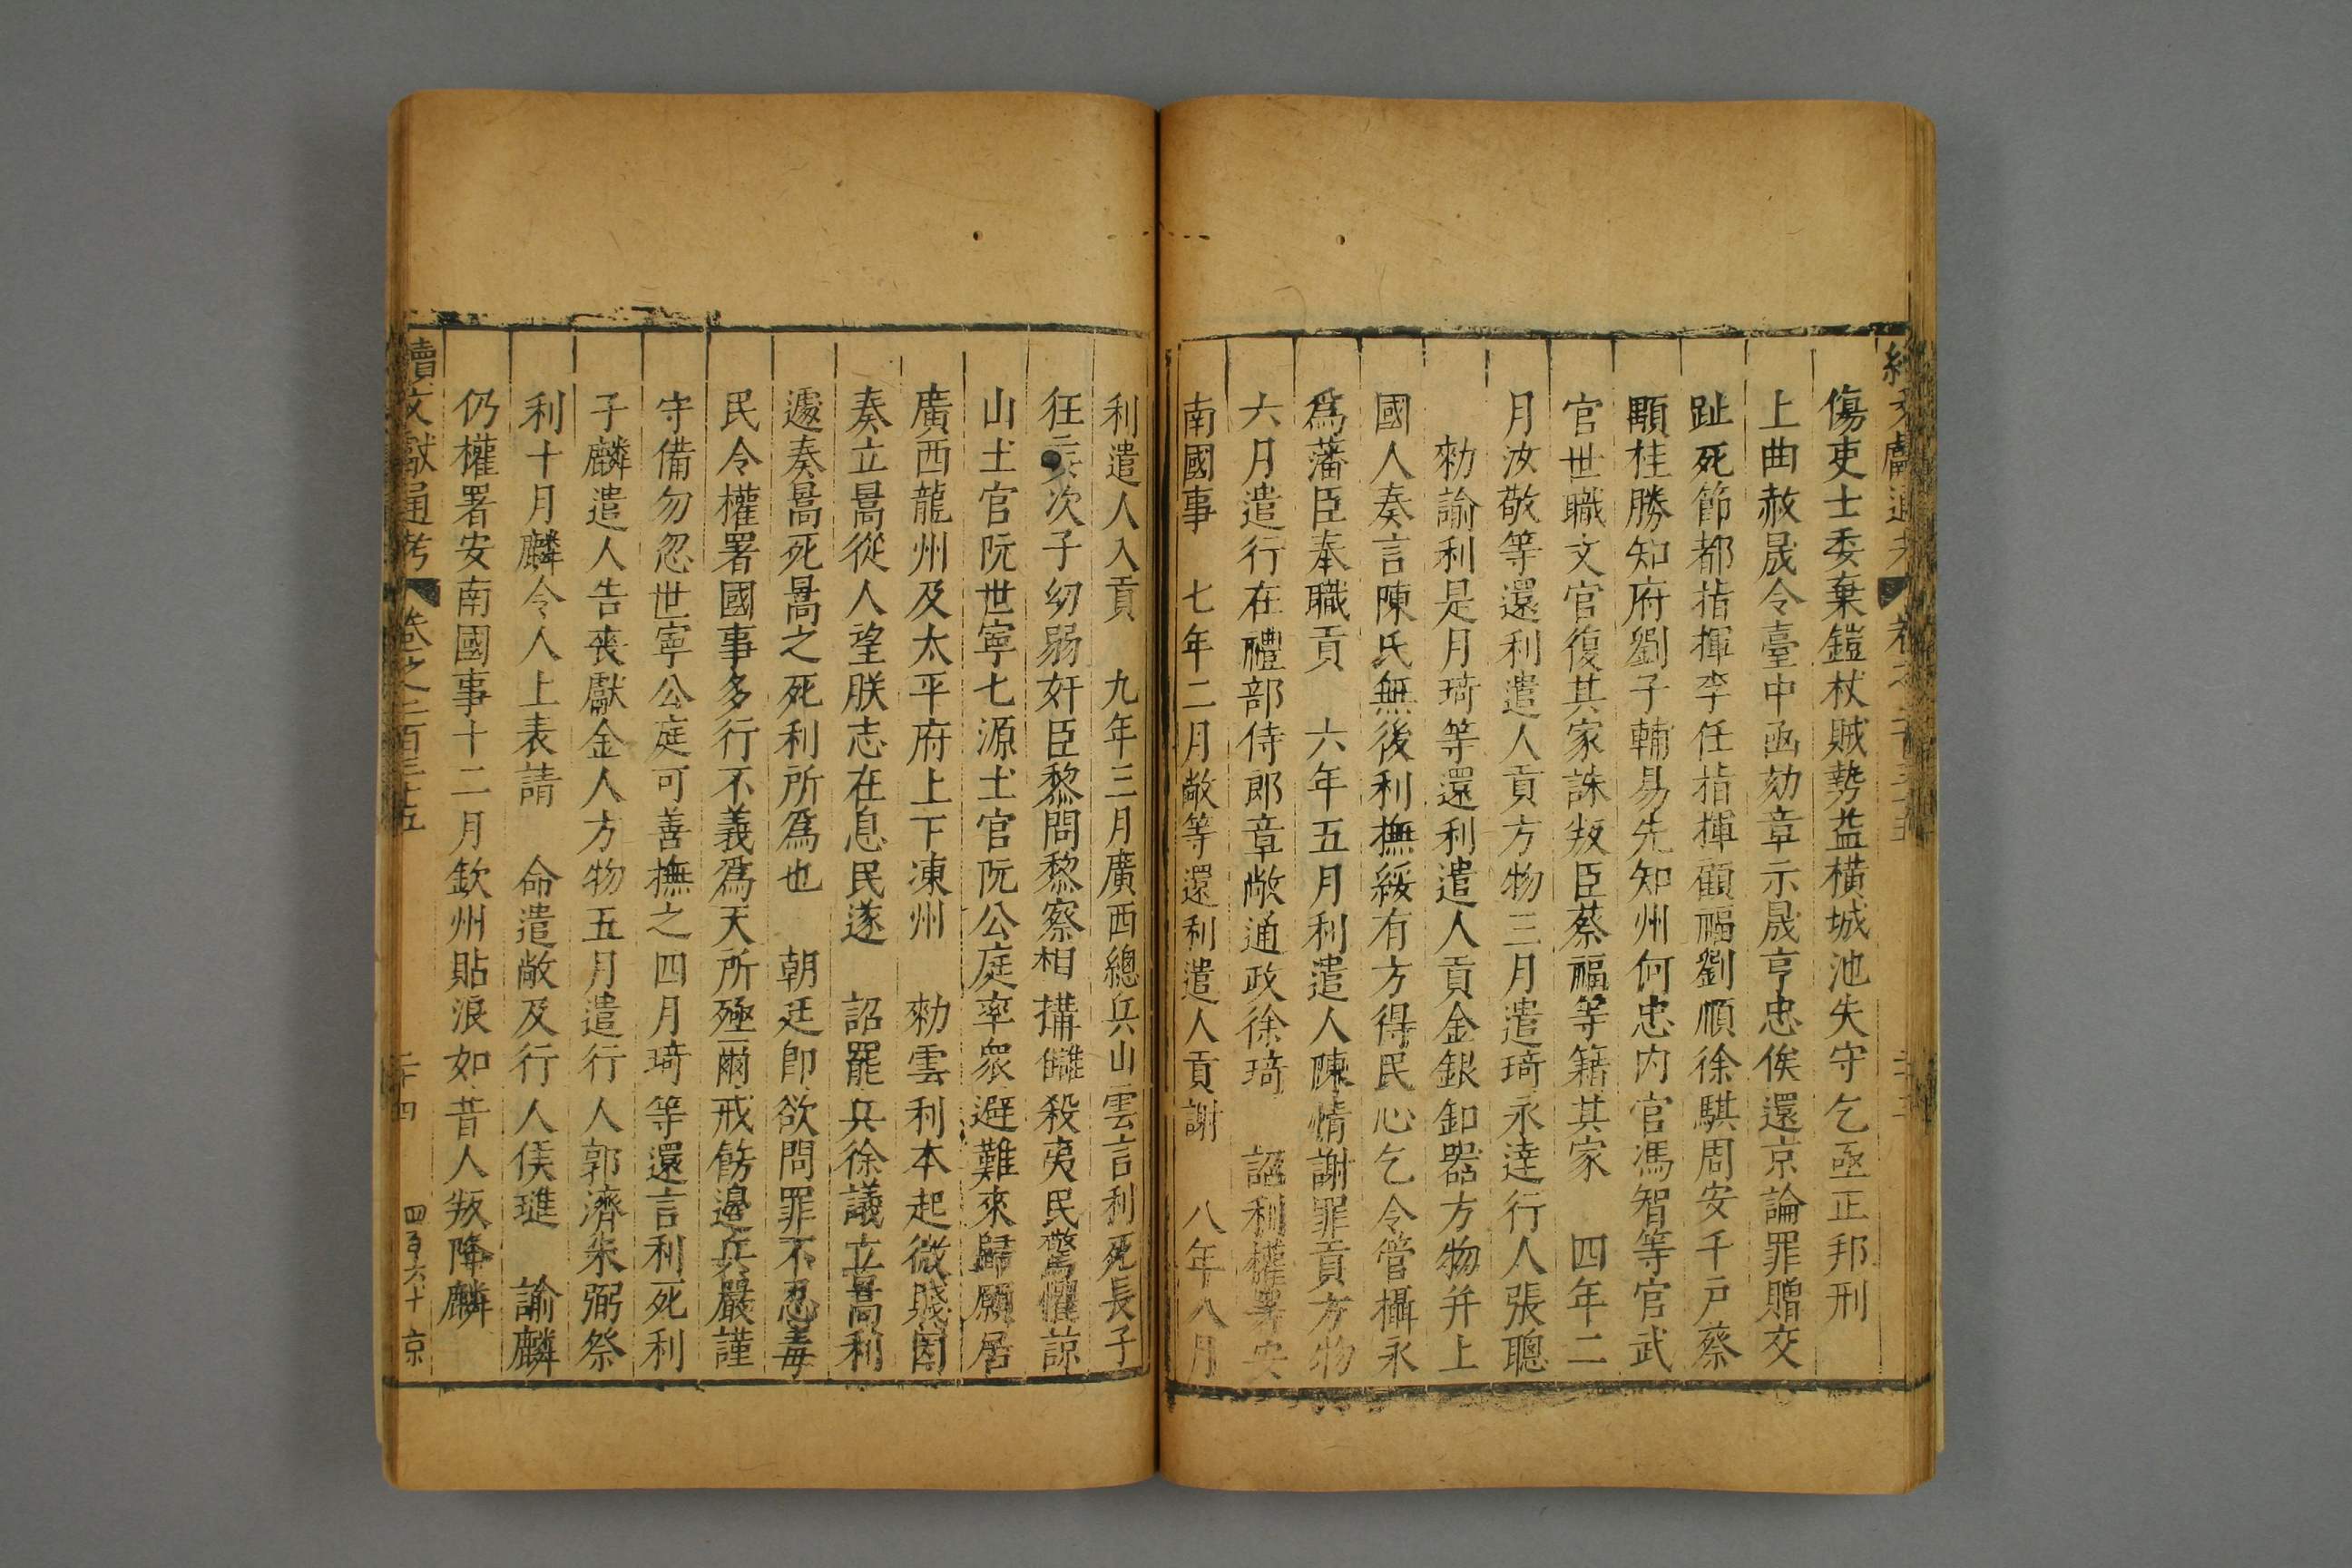 傷吏士委棄鎧杖賊勢益橫城池失守乞亟正邦刑
上曲赦晟令臺中函劾章示晟亨忠俟還京論罪贈交
趾死節都指揮李任指揮顧福劉順徐騏周安千戸蔡
顒桂勝知府劉子輔易先知州何忠内官馮智等官武
官世職文官復其家誅叛臣蔡福等籍其家 四年二
月汝敬等還利遣人貢方物三月遣琦永達行人張聰
勑諭利是月琦等還利遣人貢金銀釦器方物并上
國人奏言陳氏無後利撫綏有方得民心乞令管攝永
爲藩臣奉職貢 六年五月利遣人陳情謝罪貢方物
六月遣行在禮部侍郎章敞通政徐琦 詔利權署安
南國事 七年二月敞等還利遣人貢謝 八年八月
利遣人入貢 九年三月廣西總兵山雲言利死長子
狂次子幼弱奸臣黎問黎察相搆讎殺夷民驚懼諒
山土官阮世寧七源土官阮公庭率衆避難來歸願居
廣西龍州及太平府上下凍州 勑雲利本起微賤因
奏立暠從人望朕志在息民遂 詔罷兵徐議立暠利
遽奏暠死暠之死利所爲也 朝廷卽欲問罪不忍毒
民令權署國事多行不義爲天所殛爾戒飭邊兵嚴謹
守備勿忽世寧公庭可善撫之四月琦等還言利死利
子麟遣人告喪獻金人方物五月遣行人郭濟朱弼祭
利十月麟令人上表請 命遣敞及行人侯璡 諭麟
仍權署安南國事十二月欽州貼浪如昔人叛降麟
續文獻通考 卷之二百三十五 二十四 四百六十 京